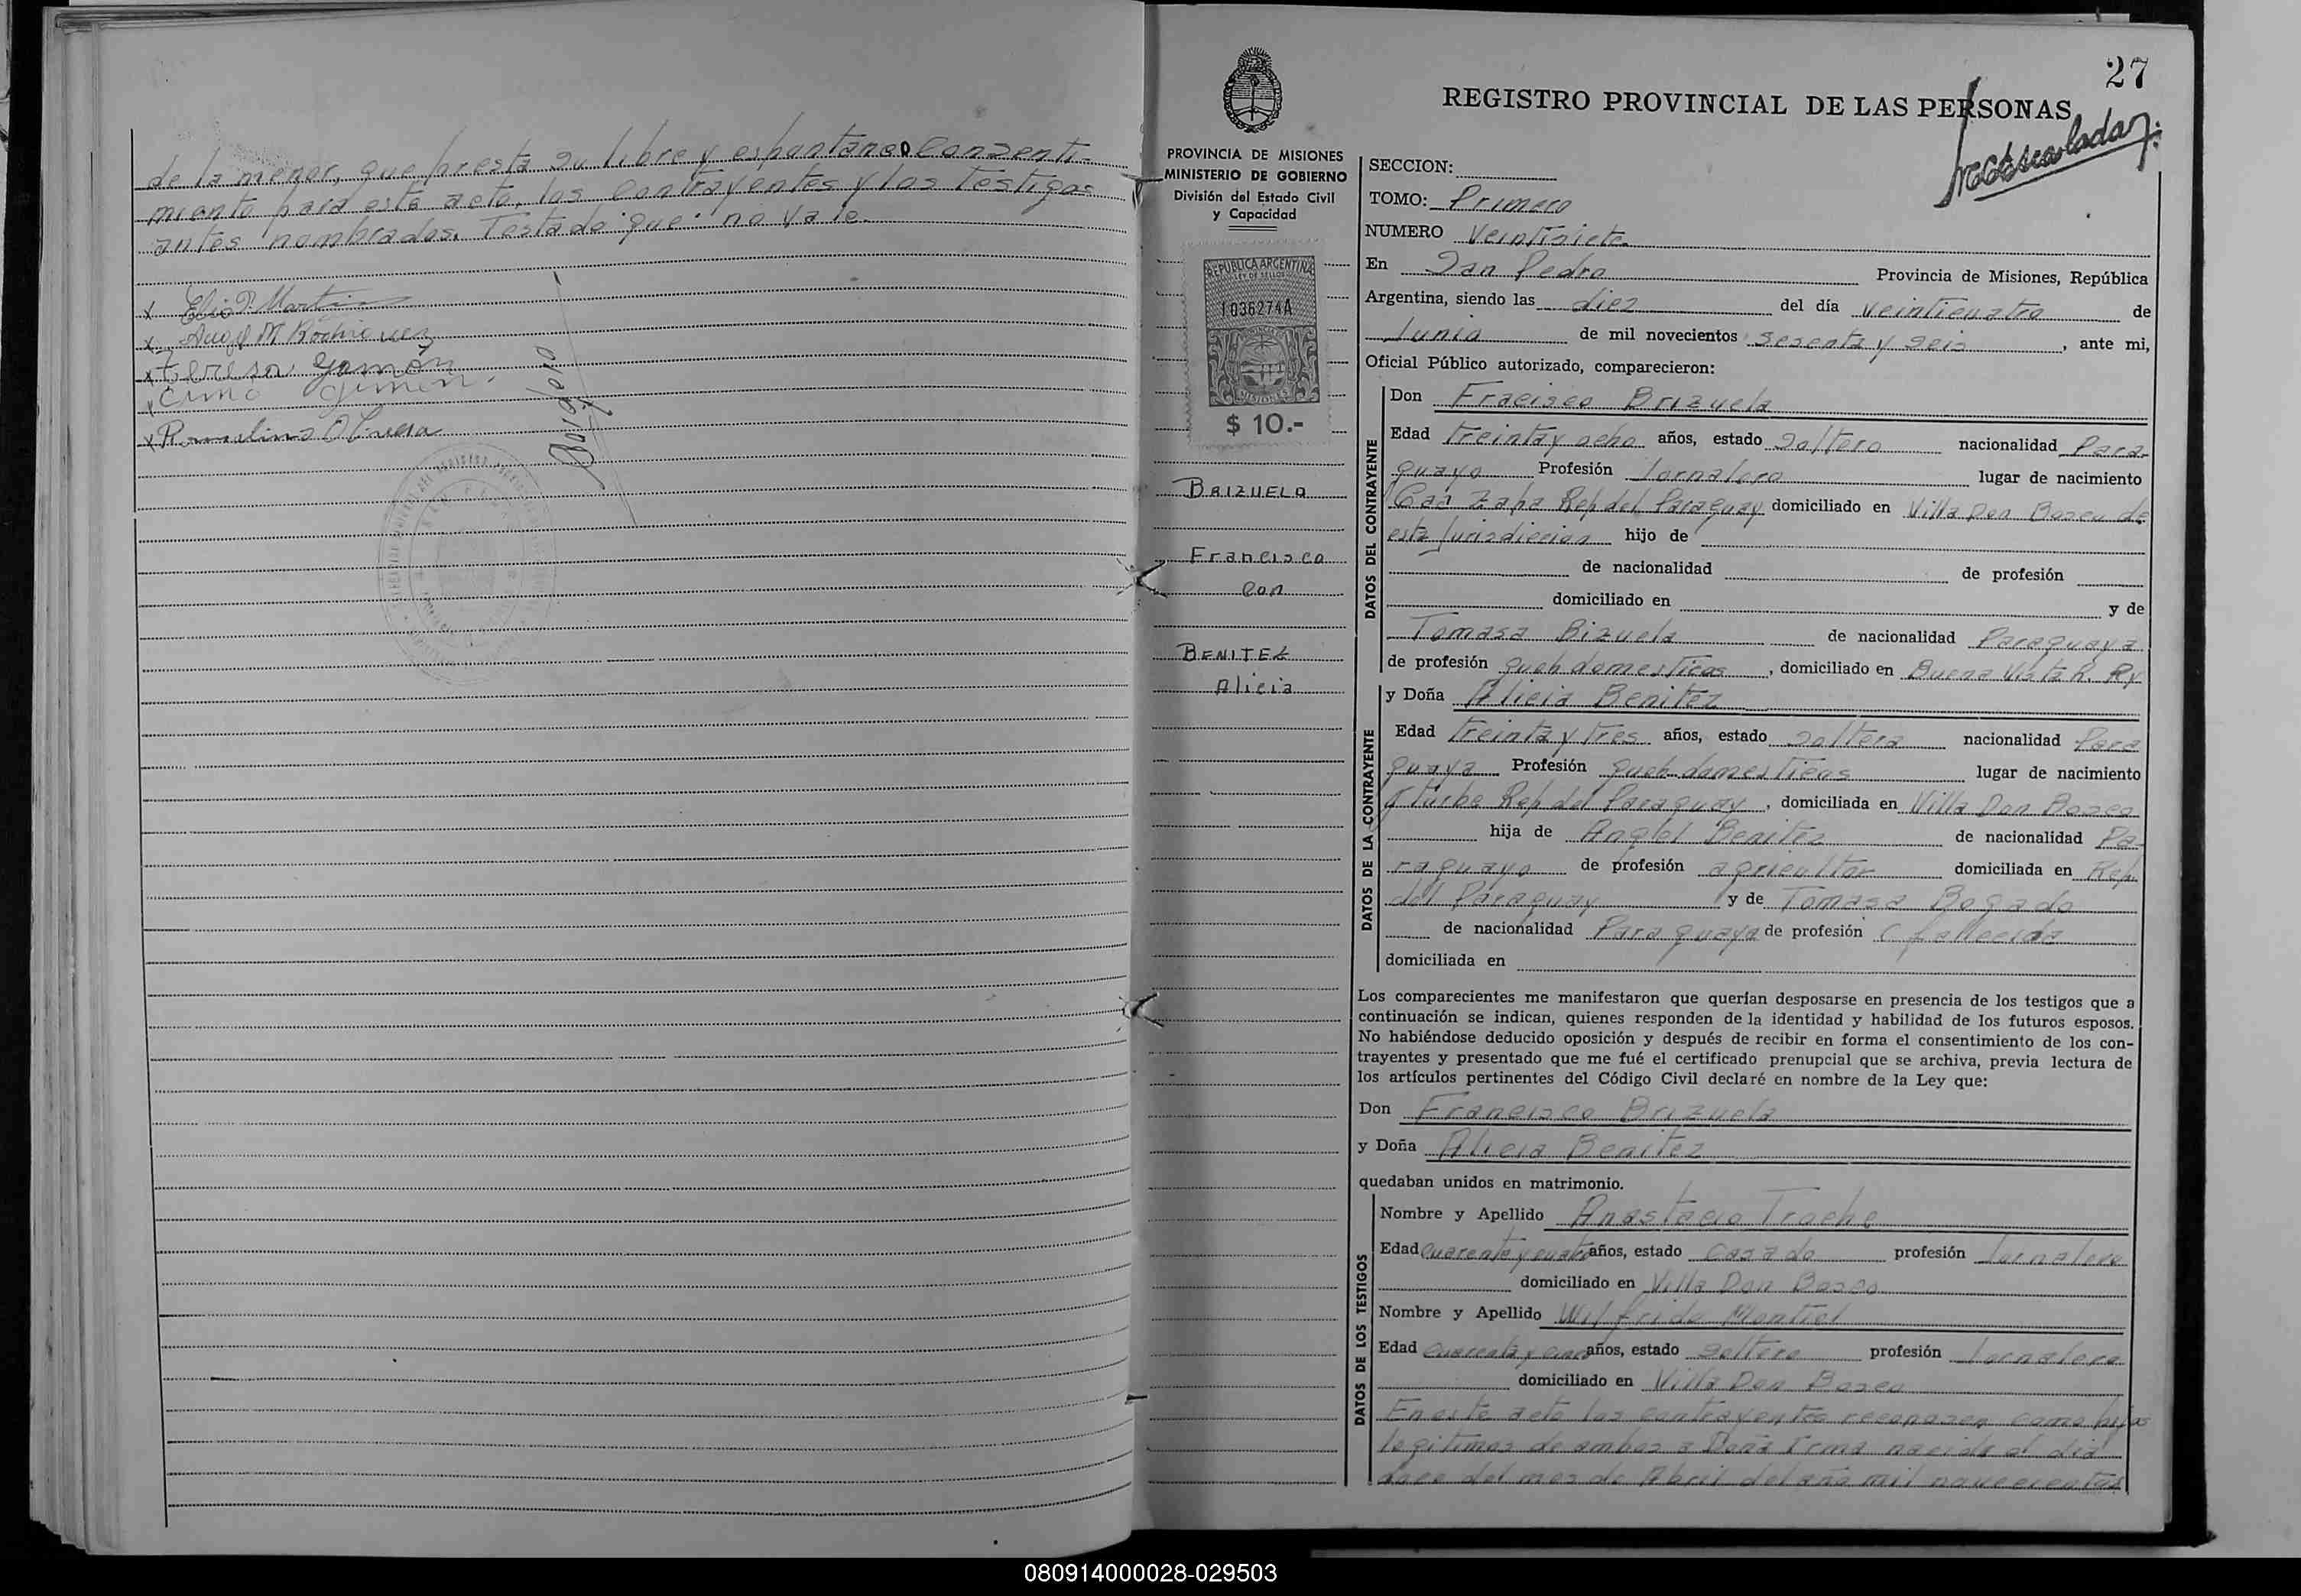 de la menor, que presta su libre y espontaneo consenti-
miento para este acto, los contrayentes y los testigos
antes nombrados. Testado "que" no vale.
x Elio P. Martin
x Angel M Rodriguez
x Teresa
x
x Romelino Olivera
27
REGISTRO PROVINCIAL DE LAS PERSONAS
PROVINCIA DE MISIONES
MINISTERIO DE GOBIERNO
División del Estado Civil
y Capacidad
REPUBLICA ARGENTINA
LEY DE SELLOS
1036274A
MISIONES
$ 10.-
BRIZUELA
Francisco
con
BENITEZ
Alicia
SECCION:
TOMO: Primero
NUMERO Veintisiete
En San Pedro Provincia de Misiones, República
Argentina, siendo las diez del día veinticuatro de
Junio de mil novecientos sesenta y seis, ante mi,
Oficial Público autorizado, comparecieron:
DATOS DEL CONTRAYENTE
Don Fracisco Brizuela
Edad treinta y ocho años, estado soltero nacionalidad Para-
guayo Profesión Jornalero lugar de nacimiento
Caa Zapa Rep del Paraguay domiciliado en Villa Don Bosco de
esta Jurisdiccion hijo de
de nacionalidad de profesión
domiciliado en y de
Tomasa Bizuela de nacionalidad Paraguaya
de profesión queh domesticos, domiciliado en Buena Vista R. Py
DATOS DE LA CONTRAYENTE
y Doña Alicia Benitez
Edad treinta y tres años, estado soltera nacionalidad Para
guaya Profesión queh domesticos lugar de nacimiento
Rep del Paraguay, domiciliada en Villa Don Bosco
hija de Angel Benitez de nacionalidad Pa-
raguayo de profesión agricultor domiciliada en Rep.
del Paraguay y de Tomasa Bogado
de nacionalidad Paraguaya de profesión (fallecida
domiciliada en
Los comparecientes me manifestaron que querían desposarse en presencia de los testigos que a
continuación se indican, quienes responden de la identidad y habilidad de los futuros esposos.
No habiéndose deducido oposición y después de recibir en forma el consentimiento de los con-
trayentes y presentado que me fué el certificado prenupcial que se archiva, previa lectura de
los artículos pertinentes del Código Civil declaré en nombre de la Ley que:
Don Francisco Brizuela
y Doña Alicia Benitez
quedaban unidos en matrimonio.
DATOS DE LOS TESTIGOS
Nombre y Apellido Anastacio Troche
Edad cuarenta y cuatro años, estado casado profesión Jornalero
domiciliado en Villa Don Bosco
Nombre y Apellido Wilfrido Montiel
Edad cuarenta y cinco años, estado soltero profesión Jornalero
domiciliado en Villa Don Bosco
En este acto los contrayentes reconocen como hijos
legitimos de ambos a Doña Irma nacida el dia
doce del mes de Abril del año mil novecientos
080914000028-029503